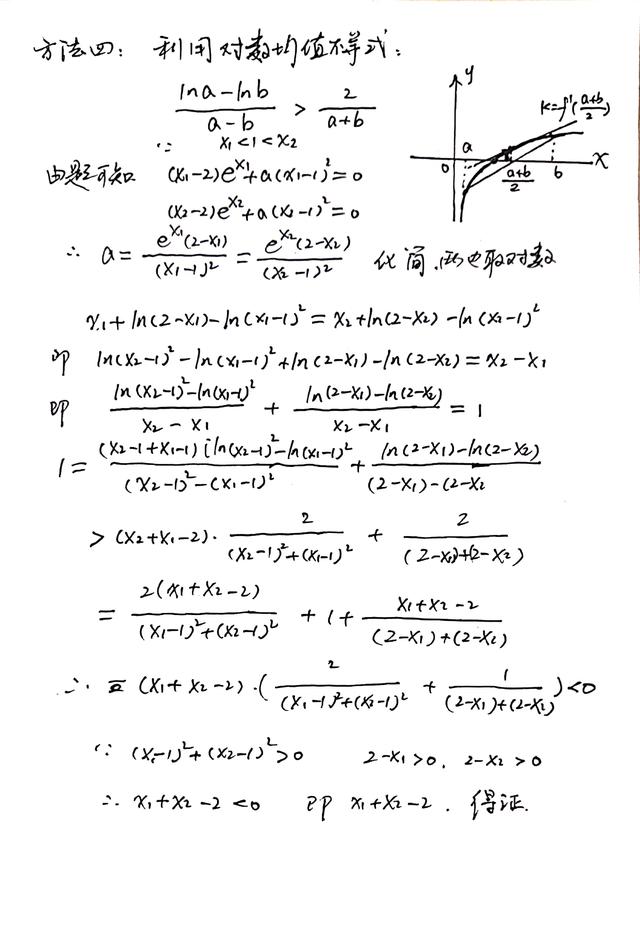 方法四：利用对数均值不等式：
(lna-lnb)/(a-b) > 2/(a+b)
y
K=f'((a+b)/2)
a
0
(a+b)/2
b
x
∵ x₁<1<x₂
由题可知 (x₁-2)e^x₁+a(x₁-1)²=0
(x₂-2)e^x₂+a(x₂-1)²=0
∴ a= e^x₁(2-x₁)/(x₁-1)² = e^x₂(2-x₂)/(x₂-1)² 化简,两边取对数
x₁+ln(2-x₁)-ln(x₁-1)²=x₂+ln(2-x₂)-ln(x₂-1)²
即 ln(x₂-1)²-ln(x₁-1)²+ln(2-x₁)-ln(2-x₂)=x₂-x₁
即 (ln(x₂-1)²-ln(x₁-1)²)/(x₂-x₁) + (ln(2-x₁)-ln(2-x₂))/(x₂-x₁) =1
1= (x₂-1+x₁-1)[ln(x₂-1)²-ln(x₁-1)²/((x₂-1)²-(x₁-1)²) + (ln(2-x₁)-ln(2-x₂))/((2-x₁)-(2-x₂
> (x₂+x₁-2)· 2/((x₂-1)²+(x₁-1)²) + 2/((2-x₁)+(2-x₂))
= 2(x₁+x₂-2)/((x₁-1)²+(x₂-1)²) +1+ (x₁+x₂-2)/((2-x₁)+(2-x₂))
∴ (x₁+x₂-2)·(2/((x₁-1)²+(x₂-1)²) + 1/((2-x₁)+(2-x₂)))<0
∵ (x₁-1)²+(x₂-1)²>0 2-x₁>0, 2-x₂>0
∴ x₁+x₂-2<0 即 x₁+x₂-2. 得证.